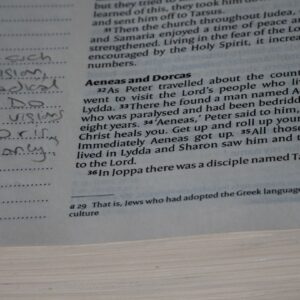 but they tried to
learned of this, they took him do
and sent him off to Tarsus.
31Then the church throughout Judea,
and Samaria enjoyed a time of peace a
strengthened. Living in the fear of the Lo
encouraged by the Holy Spirit, it increa
numbers.
Aeneas and Dorcas
32As Peter travelled about the coun
went to visit the Lord's people who li
Lydda. 33There he found a man named A
who was paralysed and had been bedrid
eight years. 34'Aeneas,' Peter said to him,
Christ heals you. Get up and roll up your
Immediately Aeneas got up. 35All those
lived in Lydda and Sharon saw him and t
to the Lord.
36In Joppa there was a disciple named Ta
a 29 That is, Jews who had adopted the Greek language
culture
such
vision,
radical
DO
vision